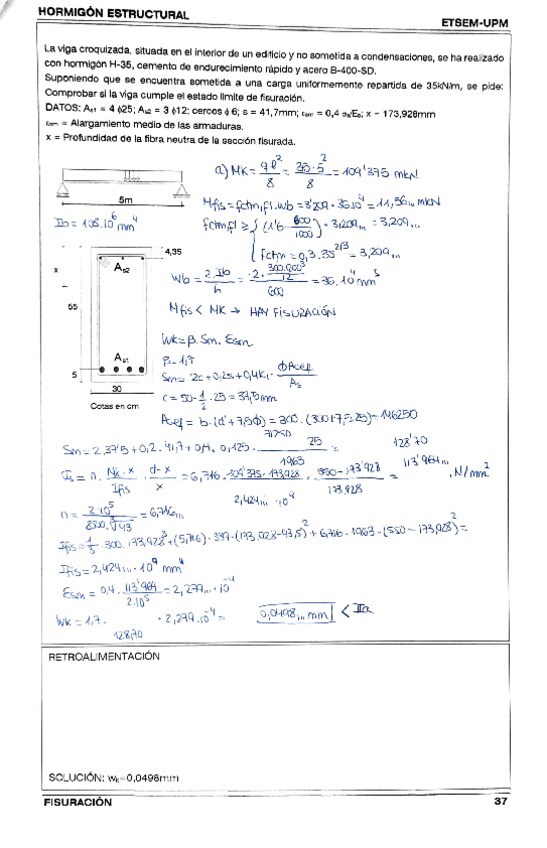 HORMIGÓN ESTRUCTURAL
ETSEM-UPM
La viga croquizada, situada en el interior de un edificio y no sometida a condensaciones, se ha realizado
con hormigón H-35, cemento de endurecimiento rápido y acero B-400-SD.
Suponiendo que se encuentra sometida a una carga uniformemente repartida de 35kN/m, se pide:
Comprobar si la viga cumple el estado límite de fisuración.
DATOS: As1 = 4 ϕ25; As2 = 3 ϕ12; cercos ϕ 6; s = 41,7mm; εsm = 0,4 σs/Es; x = 173,928mm
εsm = Alargamiento medio de las armaduras.
x = Profundidad de la fibra neutra de la sección fisurada.
a) Mk = ql²/8 = 35·5²/8 = 109'375 mkN
5m
Mfis = fctm,fl · Wb = 3'209 · 36·10⁴ = 11,56... mkN
Ib = 108·10⁶ mm⁴
fctm,fl ≥ { (1'6 - 600/1000) · 3,209... = 3,209...
fctm = 0,3 · 35^2/3 = 3,209...
4,35
As2
x
Wb = 2·Ib/h = 2· 300·600³/12 / 600 = 36·10⁴ mm³
55
Mfis < Mk → HAY FISURACIÓN
Wk = β · Sm · Esm
As1
β = 1,7
5
Sm = 2c + 0,2s + 0,4K1 · ϕAcef/As
30
c = 50 - 1/2 · 25 = 37,5 mm
Cotas en cm
Acef = b·(d' + 7,5ϕ) = 300·(300+7,5·25) = 146250
Sm = 2·37'5 + 0,2·41,7 + 0,4·0,125· 71250 · 25 / 1963 = 128'70
σs = n · Mk·x/Ifis · d-x/x = 6,716... · 109'375·173,928 / 2,424...·10⁴ · 550-173'928 / 173,928 = 113'964... N/mm²
n = 2·10⁵ / 8500·∛43 = 6,716...
Ifis = 1/3 · 300 · 173,928³ + (5,716) · 339 · (173,928-43,5)² + 6,716 · 1963 · (550-173,928)² =
Ifis = 2,424... · 10⁹ mm⁴
Esm = 0,4 · 113'964 / 2·10⁵ = 2,279... · 10⁻⁴
Wk = 1,7 · 128,70 · 2,279·10⁻⁴ = 0,0498... mm < IIa
RETROALIMENTACIÓN
SOLUCIÓN: wk=0,0498mm
FISURACIÓN
37